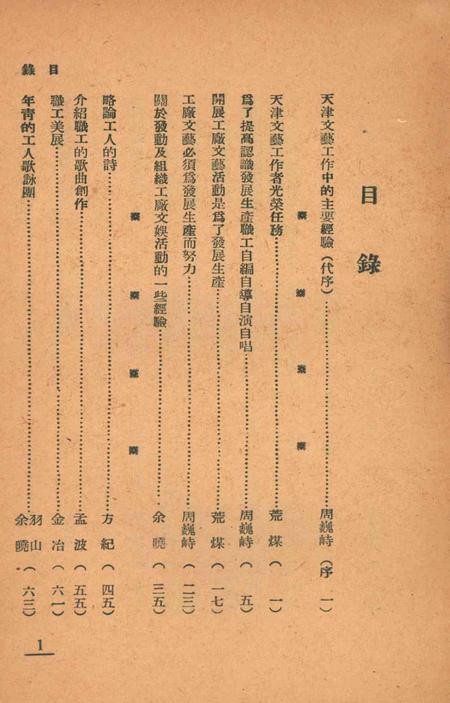 目錄
天津文藝工作中的主要經驗(代序)……周巍峙(序 一)
天津文藝工作者光榮任務……荒 煤( 一)
爲了提高認識發展生產職工自編自導自演自唱……周巍峙( 五)
開展工廠文藝活動是爲了發展生產……荒 煤( 一七)
工廠文藝必須爲發展生產而努力……周巍峙(二三)
關於發動及組織工廠文娛活動的一些經驗……余 曉( 三五)
略論工人的詩……方 紀(四五)
介紹職工的歌曲創作……孟 波(五五)
職工美展……金 冶(六一)
年青的工人歌詠團……羽山 余曉(六三)
目錄
1